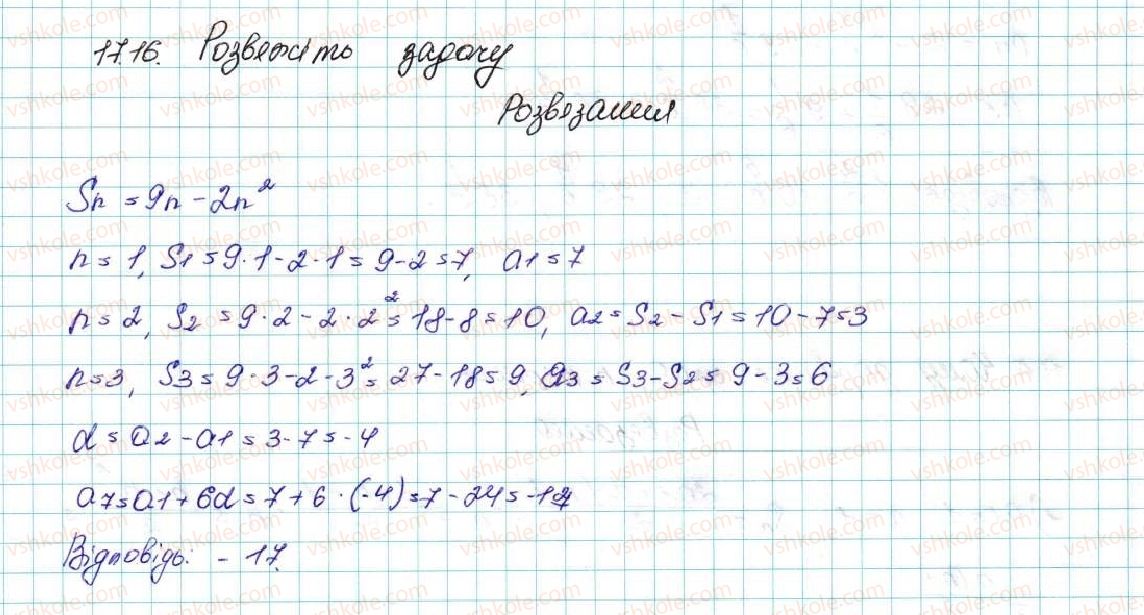 17.16. Розвяжіть задачу
Розвязання
Sn = 9n - 2n²
n = 1, S1 = 9·1 - 2·1 = 9 - 2 = 7, a1 = 7
n = 2, S2 = 9·2 - 2·2² = 18 - 8 = 10, a2 = S2 - S1 = 10 - 7 = 3
n = 3, S3 = 9·3 - 2 - 3² = 27 - 18 = 9, a3 = S3 - S2 = 9 - 3 = 6
d = a2 - a1 = 3 - 7 = -4
a7 = a1 + 6d = 7 + 6·(-4) = 7 - 24 = -17
Відповідь: - 17.